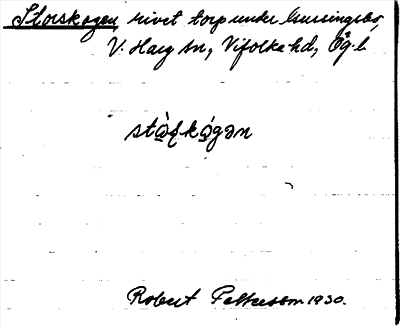 Storskogen, rivet torp under Grussingsbo,
V. Harg sn, Vifolka hd, Ög. l.
stò̩ꞎkó̩gən
Robert Pettersson 1930.